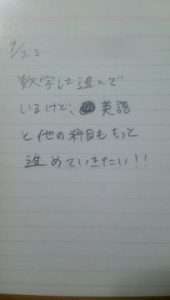 9/23
数学は進んで
いるけど、英語
と他の科目ももっと
進めていきたい!!